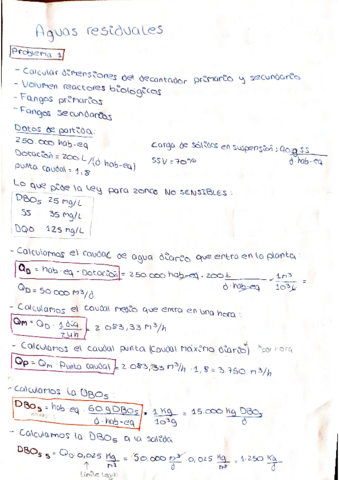 Aguas residuales
Problema 1
- Calcular dimensiones del decantador primario y secundario
- Volumen reactores biologicos
- Fangos primarios
- Fangos secundarios
Datos de partida:
250.000 hab-eq
Dotación = 200 L/(d·hab-eq)
punta caudal = 1,8
carga de sólidos en suspensión: 90 g SS / d·hab-eq
SSV = 70%
Lo que pide la ley para zonas NO SENSIBLES:
DBO5 25 mg/L
SS 35 mg/L
DQO 125 mg/L
- Calculamos el caudal de agua diario que entra en la planta
QD = hab-eq · Dotación = 250.000 hab-eq · 200 L / d·hab-eq · 1 m³ / 10³ L =
QD = 50.000 m³/d
- Calculamos el caudal medio que entra en una hora:
Qm = QD · 1 día / 24 h = 2 083,33 m³/h
- Calculamos el caudal punta (caudal máximo diario)
Qp = Qm · Punta caudal = 2 083,33 m³/h · 1,8 = 3.750 m³/h
- Calculamos la DBO5:
DBO5 = hab-eq · 60 g DBO5 / d·hab-eq · 1 kg / 10³ g = 15 000 kg DBO5 / d
- Calculamos la DBO5 a la salida
DBO5 s = QD 0,025 kg/m³ = 50.000 m³/d · 0,025 kg/m³ = 1.250 kg/d
Límite legal